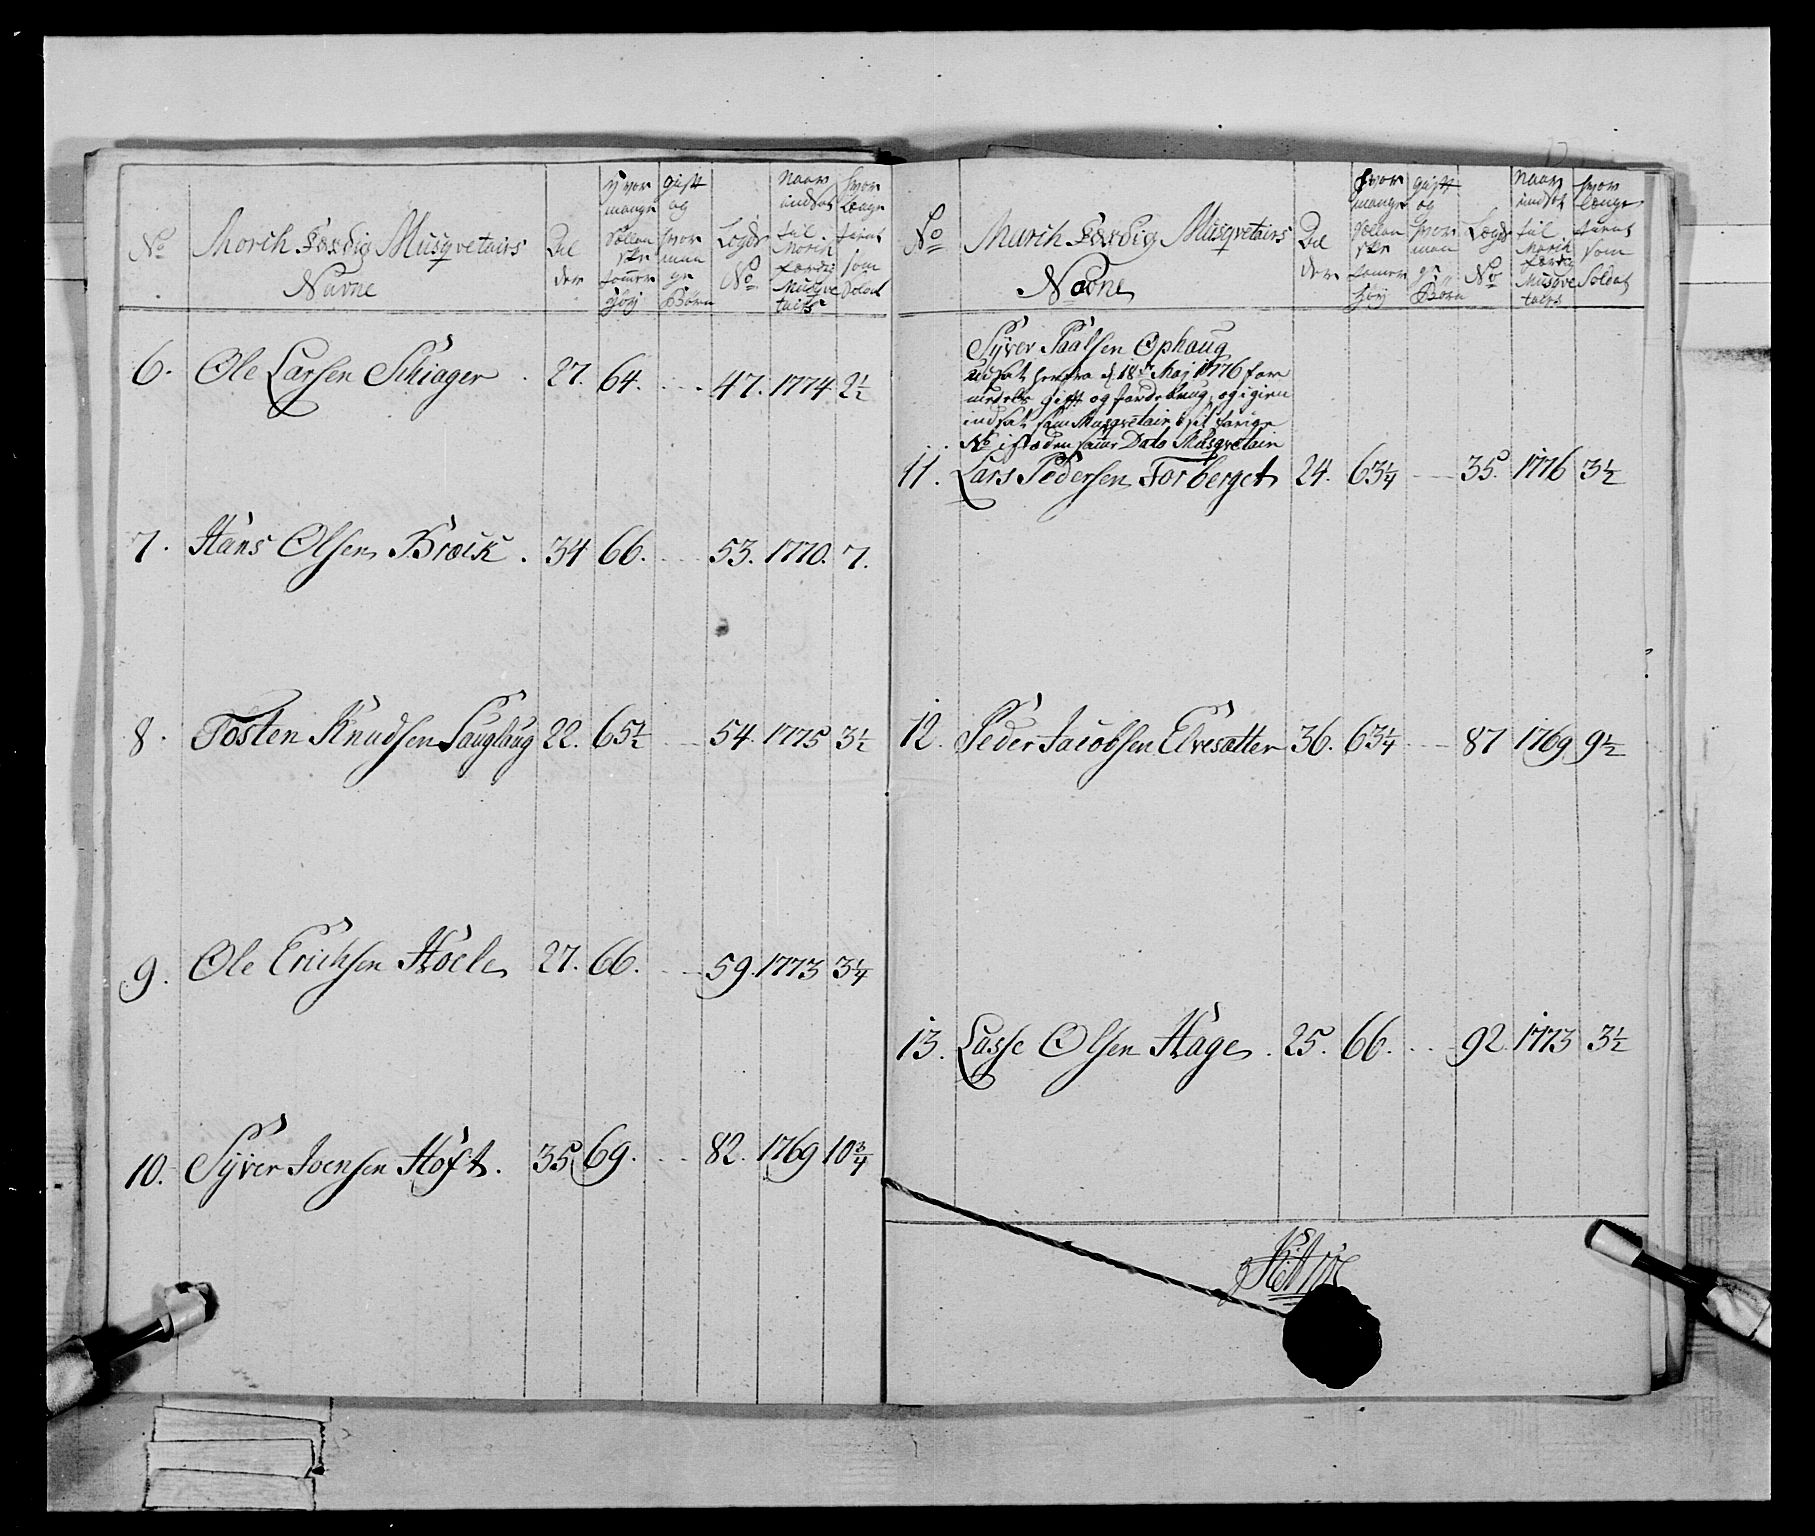 No
March Færdig Musqvetairs
Navne
Al
der
hvor
mange
Sællan
ske
tomer
höÿ
gift
og
hvor
man
ge
Börn
Lægds
No
Naar
indsat
til
March
færdig
Musqve
tairs
hvor
længe
tient
som
Soldat
6. Ole Larsen Schiager . 27. 64. . . . 47. 1774 2½
7. Hans Olsen Bræck . 34 66. . . . 53. 1770. 7.
8. Tosten Knudsen Sauglaug 22. 65½ . . . 54. 1775 3½
9. Ole Erichsen Hoele 27. 66. . . . 59. 1773 3¼
10. Syver Joensen Hoft . 35 69. . . . 82. 1769 10¾
No
March Færdig Musqvetairs
Navne
Al
der
hvor
mange
Sællan
ske
tomer
höÿ
gift
og
hvor
man
ge
Börn
Lægds
No
Naar
indsat
til
March
færdig
Musqve
tairs
hvor
længe
tient
som
Soldat
Syver Paalsen Ophaug
udsat herfra d 18de Maj 1776 for
medelst gift og fardebrug, og igien
indsat som Musqvetair til forige
No i stæden samme Dato Musqvetair
11. Lars Pedersen Forberget 24. 63¼ . . . 35. 1776 3½
12. Peder Jacobsen Elvesætter 36. 63¼ . . . 87 1769 9½
13. Lasse Olsen Hage . 25. 66. . . . 92. 1773 3½